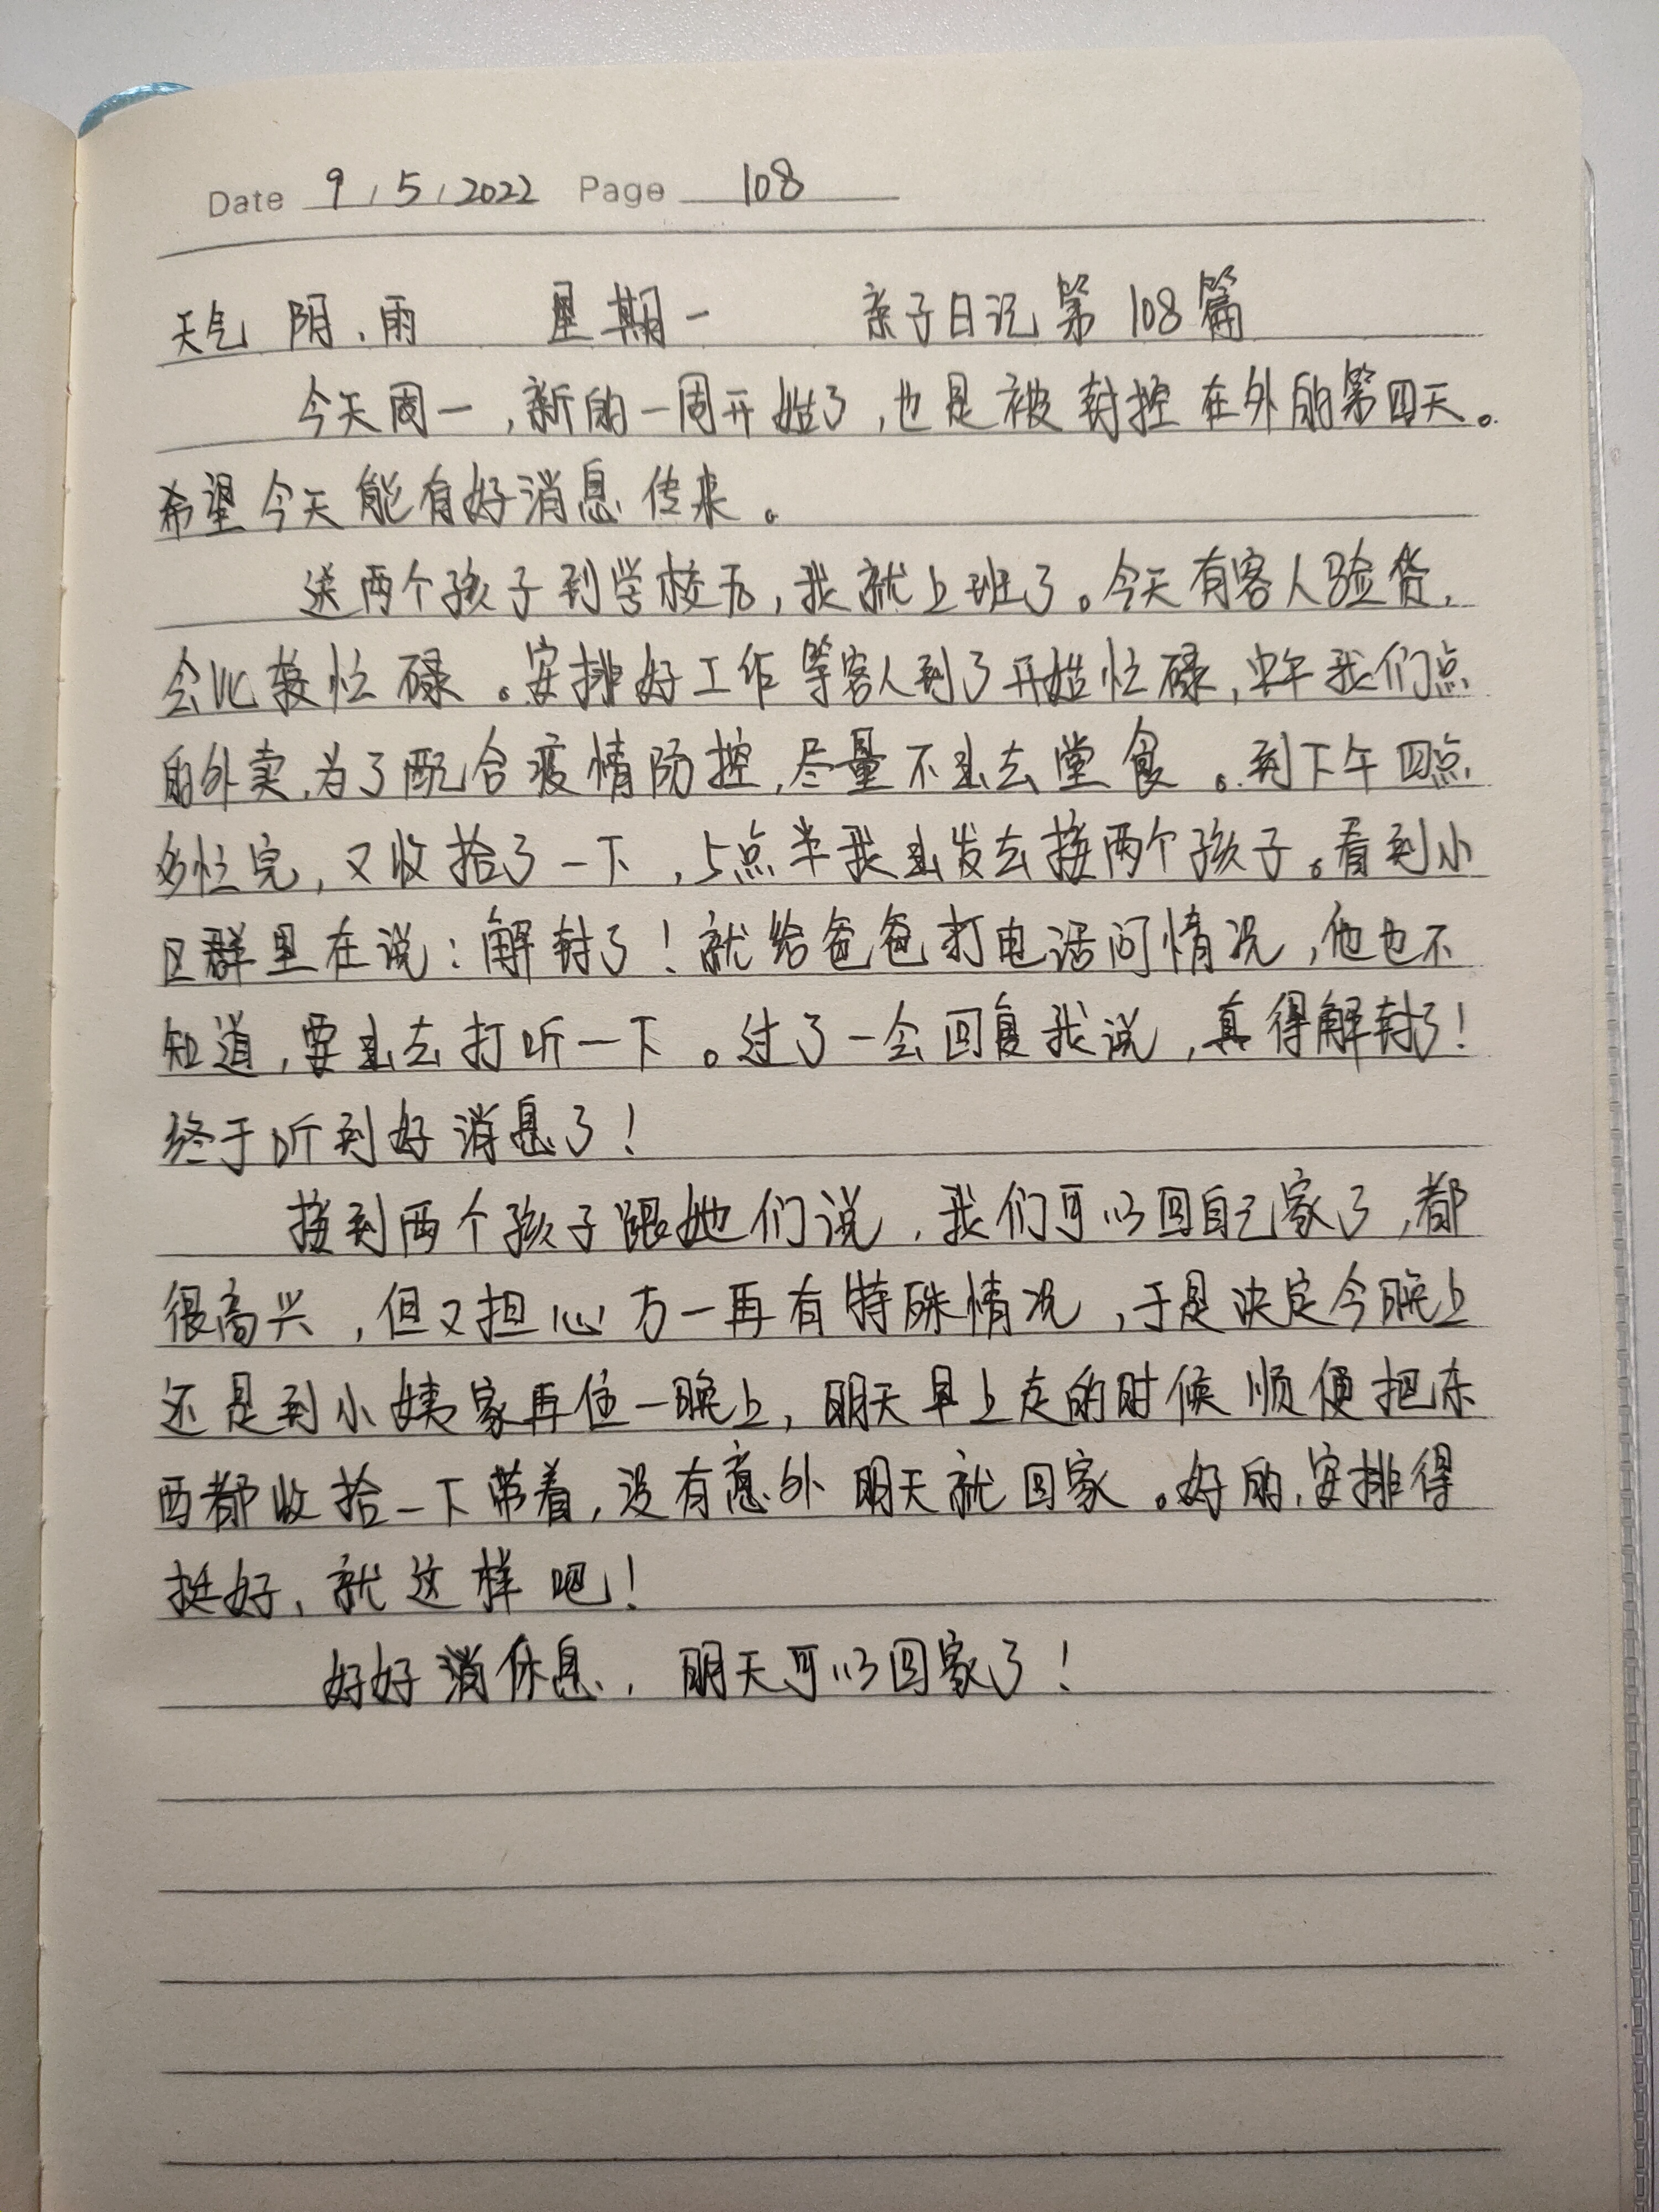 Date 9 / 5 / 2022 Page 108
天气 阴、雨 星期一 亲子日记第108篇
今天周一,新的一周开始了,也是被封控在外的第四天。
希望今天能有好消息传来。
送两个孩子到学校后,我就上班了。今天有客人验货,
会比较忙碌。安排好工作等客人到了开始忙碌,中午我们点
的外卖,为了配合疫情防控,尽量不出去堂食。到下午四点
多忙完,又收拾了一下,5点半我出发去接两个孩子。看到小
区群里在说:解封了!就给爸爸打电话问情况,他也不
知道,要出去打听一下。过了一会回复我说,真得解封了!
终于听到好消息了!
接到两个孩子跟她们说,我们可以回自己家了,都
很高兴,但又担心万一再有特殊情况,于是决定今晚上
还是到小姨家再住一晚上,明天早上走的时候顺便把东
西都收拾一下带着,没有意外明天就回家。好的,安排得
挺好,就这样吧!
好好消休息,明天可以回家了!